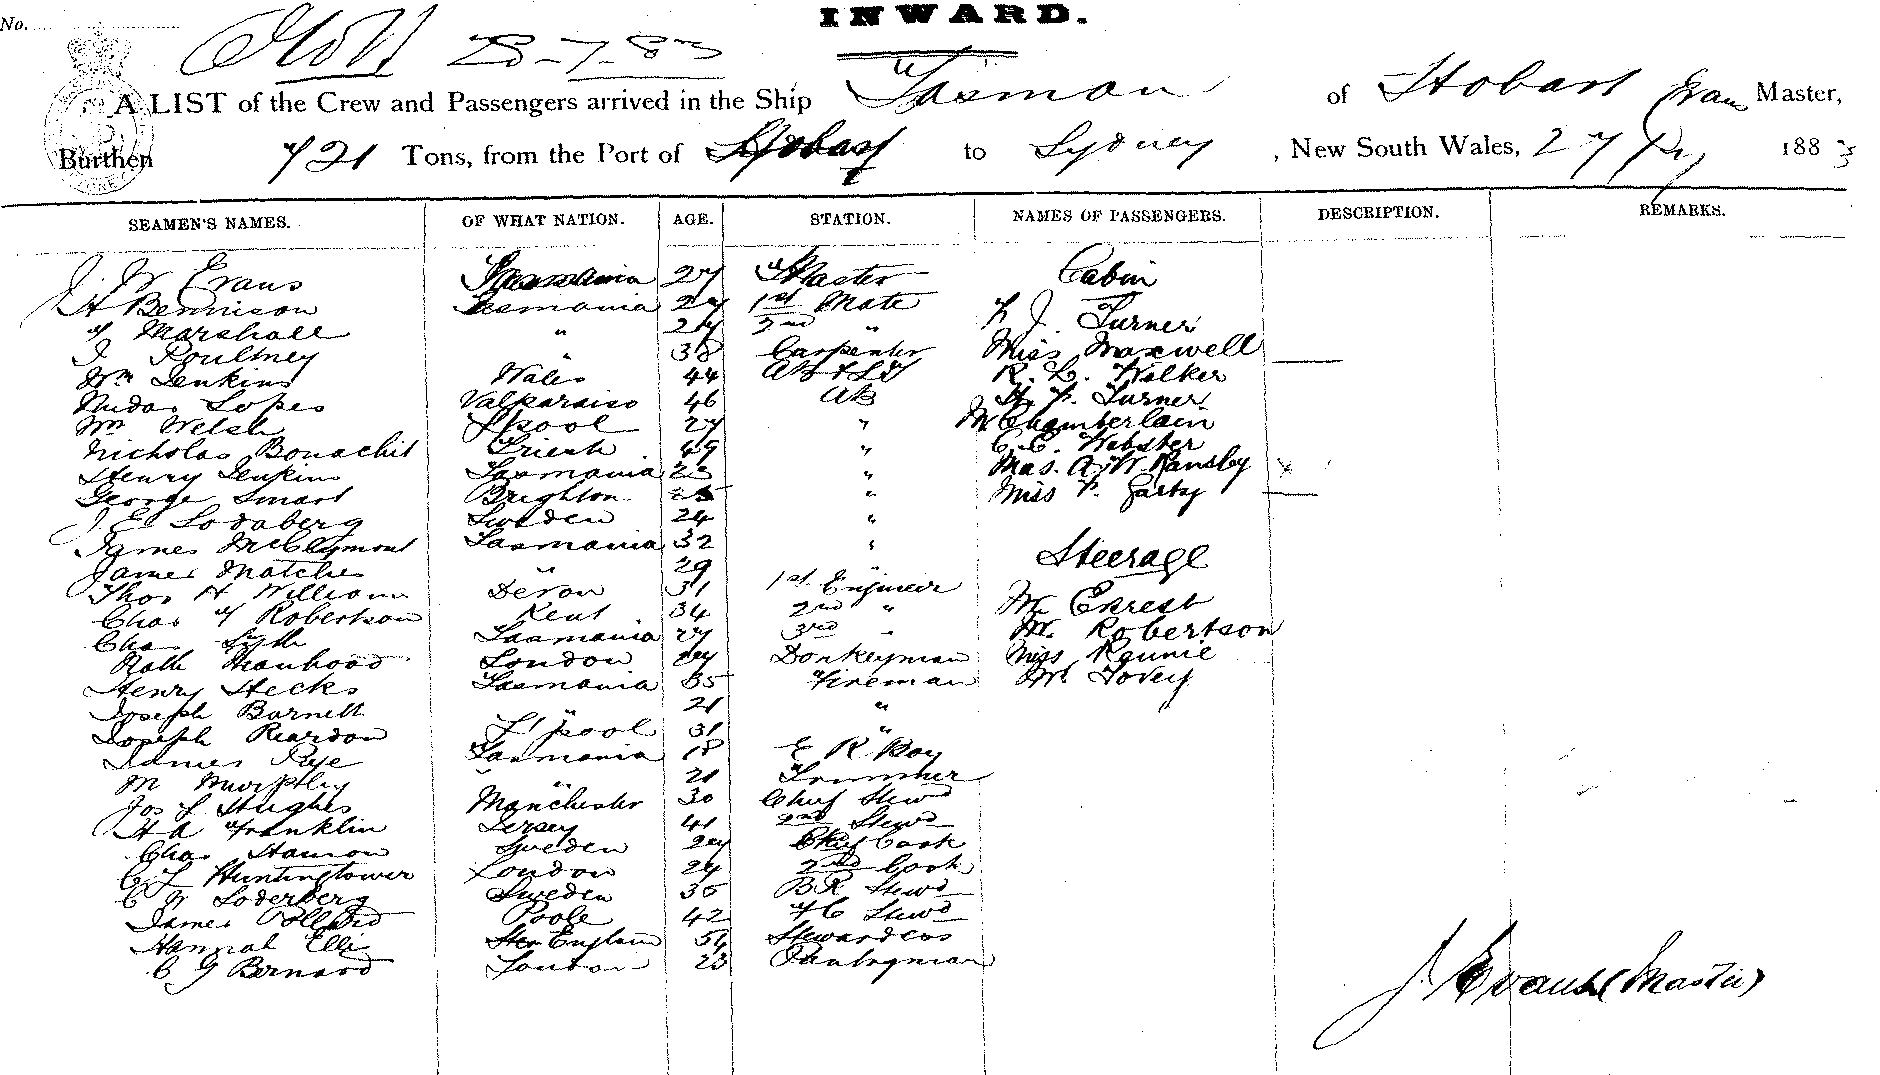 INWARD.
No.
28-7-83
A LIST of the Crew and Passengers arrived in the Ship "Tasman of Hobart Evans Master,
Burthen 721 Tons, from the Port of Hobart to Sydney, New South Wales, 27 1883
SEAMEN'S NAMES. OF WHAT NATION. AGE. STATION. NAMES OF PASSENGERS. DESCRIPTION. REMARKS.
J. W Evans Tasmania 27 Master Cabin
H Bennison Tasmania 27 1st Mate
F Marshall " 24 2nd " J. Turner
J Poultney " 38 Carpenter Miss Maxwell
Wm Jenkins Wales 44 AB & LT R. L. Walker
Lopes Valparaiso 46 AB H. F. Turner
Wm Welsh L'pool 27 " M Chamberlain
Nicholas Bonachit Triest 49 " C. C. Webster
Henry Jenkins Tasmania 23 " Mas. A. W. Ransley
George Smart Brighton 25 " Miss F. Garby
J. E. Sodaberg Sweden 24 "
James McClymont Tasmania 32 " Steerage
James " 29 "
Thos H William Devon 31 1st Engineer
Chas F Robertson Kent 34 2nd " Mr
Chas Tasmania 27 3rd " Mr. Robertson
London Donkeyman Miss Rennie
Henry Hecks Tasmania 35 Fireman Mr Tovey
Joseph Barnett " 21 "
Joseph Reardon L'pool 31 "
James Pye Tasmania 18 E R Boy
M Murphy " 21 Trimmer
Jos L Hughes Manchester 30 Chief Stewd
H A Franklin Jersey 41 2nd Stewd
Chas Hamon Sweden 27 Chief Cook
C L Huntingtower London 24 2nd Cook
C W Soderberg Sweden 35 BR Stewd
James Pollard Poole 42 FC Stewd
Hannah Ellis England 54 Stewardess
C G Bernard London 23 Pantryman
J. Evans (Master)